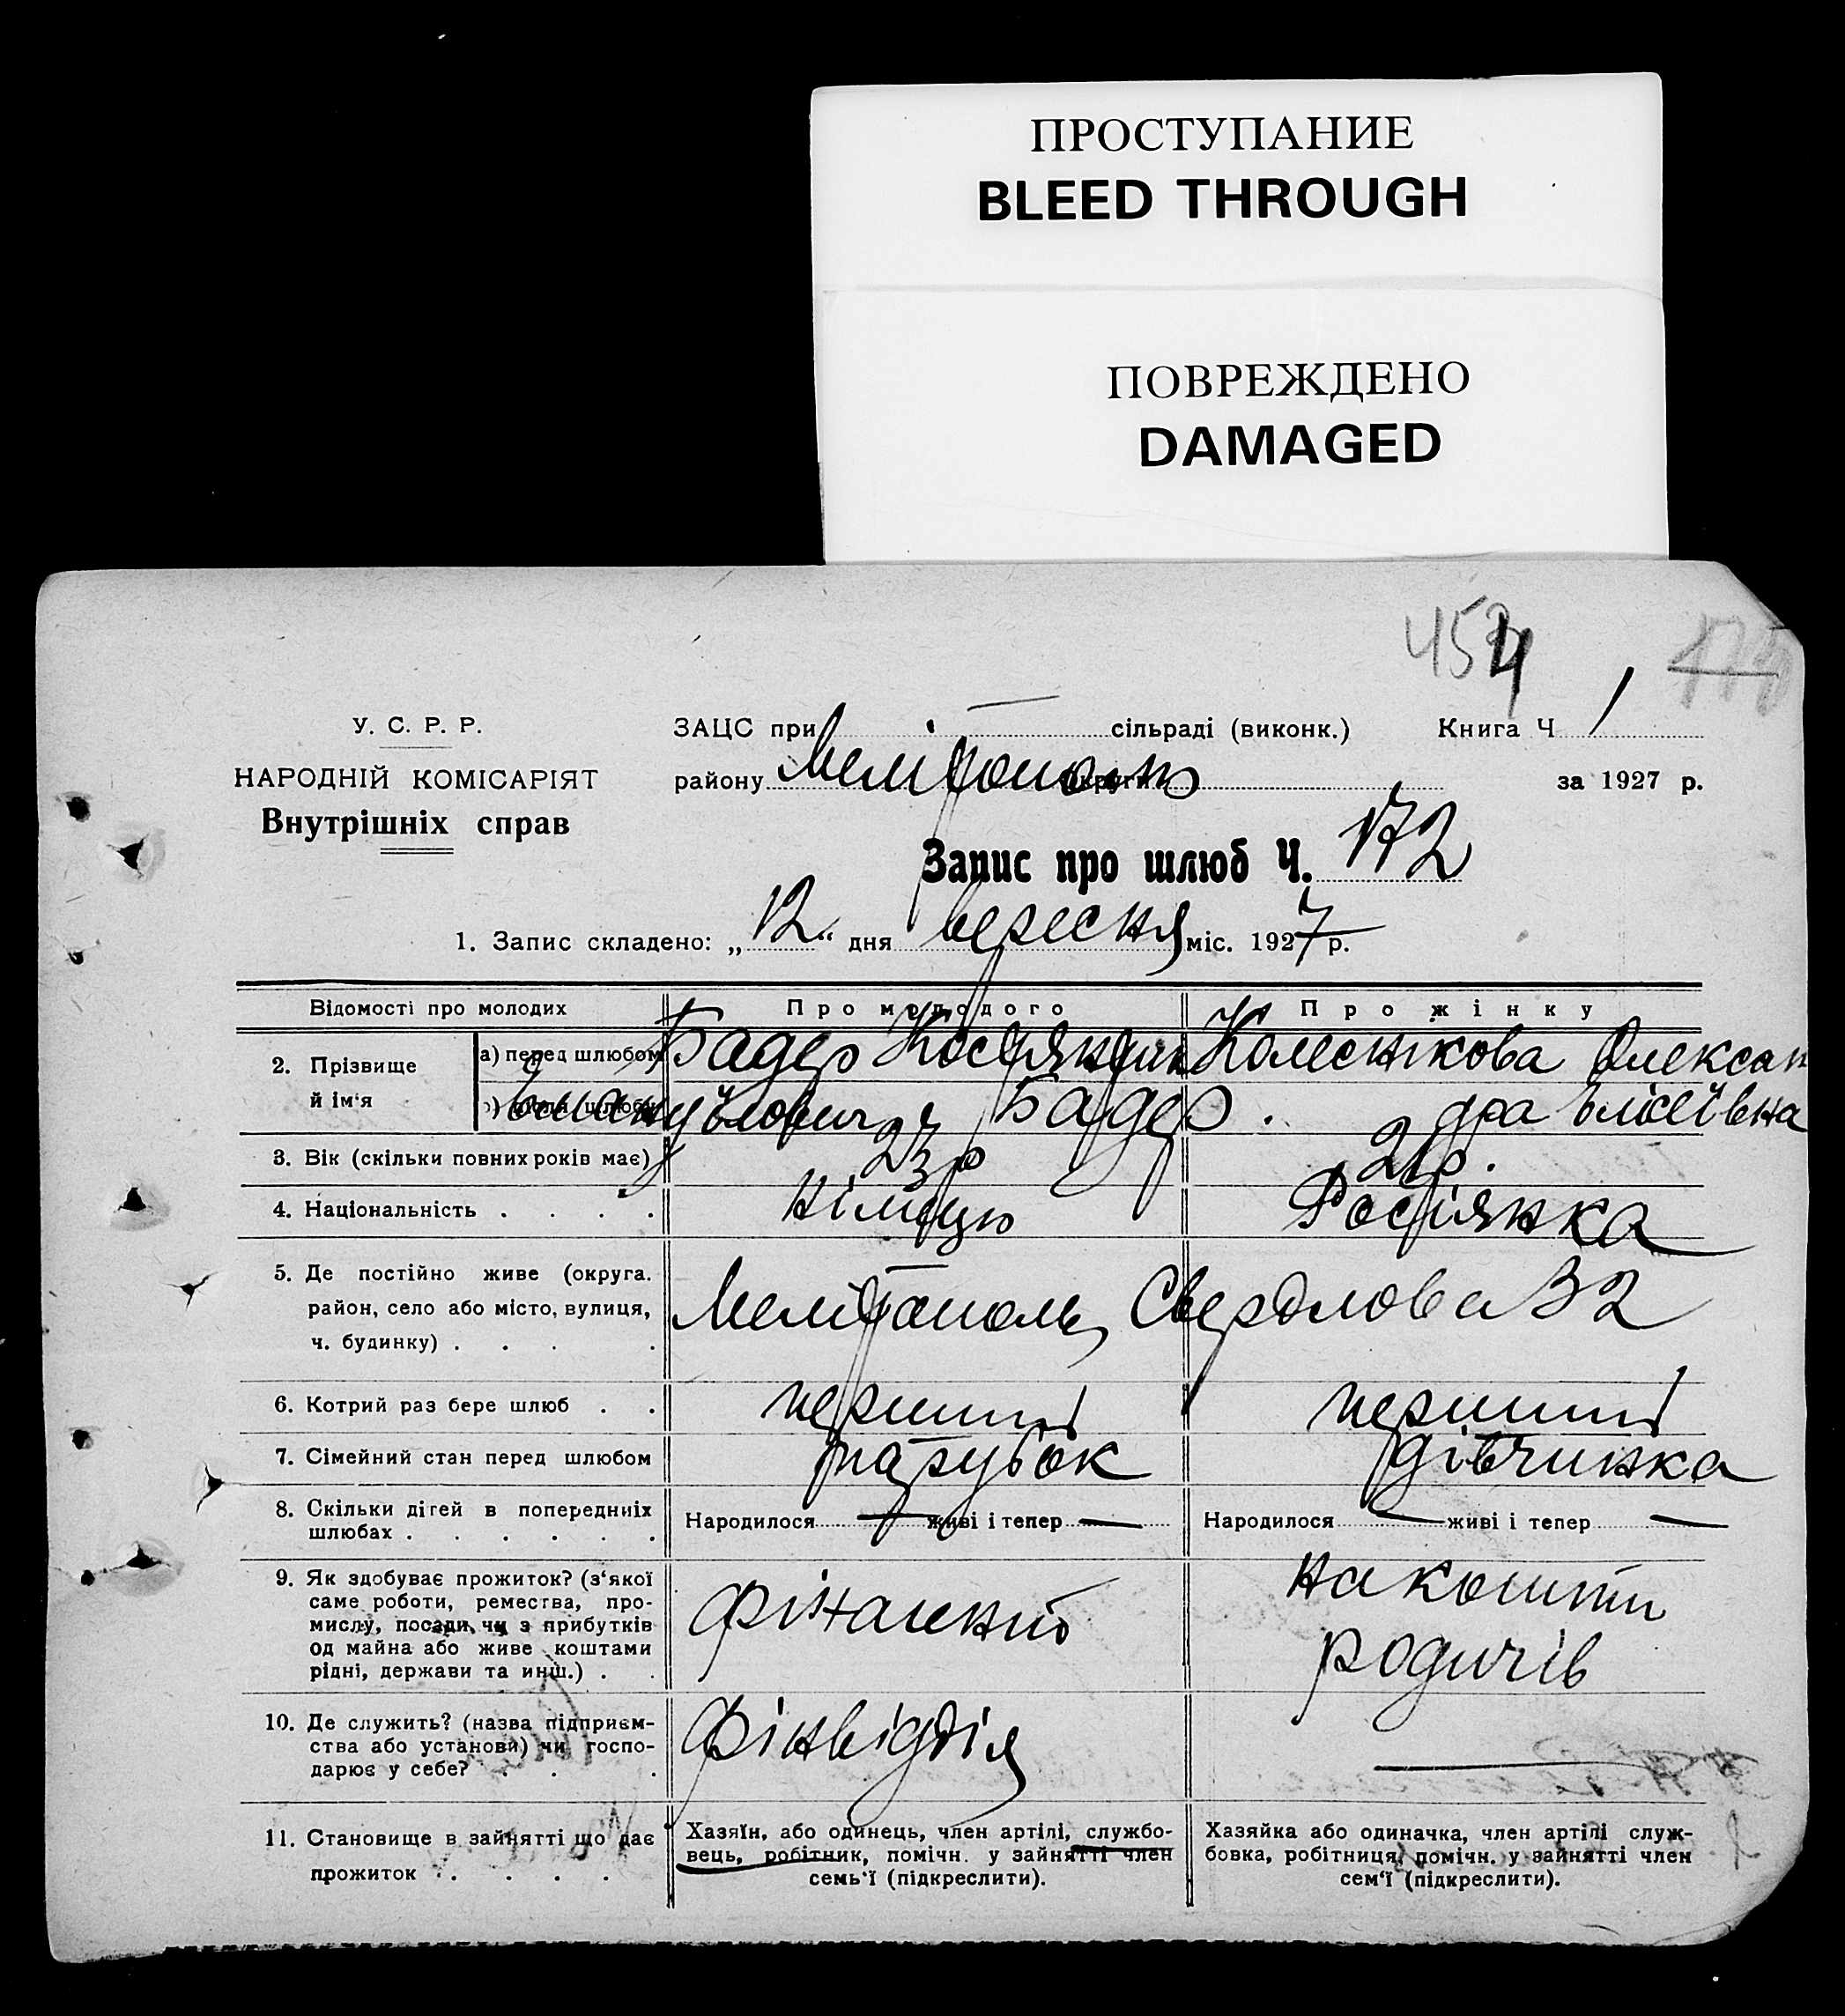 ПРОСТУПАНИЕ
BLEED THROUGH
ПОВРЕЖДЕНО
DAMAGED
454
У. С. Р. Р.
НАРОДНІЙ КОМІСАРІЯТ
Внутрішніх справ
ЗАЦС при сільраді (виконк.) Книга Ч 1
району Мелітополь округи за 1927 р.
Запис про шлюб Ч. 172
1. Запис складено: „12“ дня вересня міс. 1927 р.
Відомості про молодих Про молодого Про жінку
2. Прізвище й ім'я
а) перед шлюбом Бадер Костянтин Колеснікова Олексан
б) після шлюбу Емануїлович Бадер. дра Елісеївна
3. Вік (скільки повних років має) 23 р 21 р.
4. Національність . . . . Німець Росіянка
5. Де постійно живе (округа. район, село або місто, вулиця, ч. будинку) . . . .
Мелітополь, Свердлова 32
6. Котрий раз бере шлюб . . перший перший
7. Сімейний стан перед шлюбом парубок дівчинка
8. Скільки дітей в попередніх шлюбах . . . . . .
Народилося — живі і тепер — Народилося — живі і тепер —
9. Як здобуває прожиток? (з'якої
саме роботи, ремества, про-
мислу, посади, чи з прибутків
од майна або живе коштами
рідні, держави та инш.) . .
на кошти
родичів
10. Де служить? (назва підприєм-
ства або установи) чи госпо-
дарює у себе? . . .
Фінвідділ —
11. Становище в зайнятті що дає
прожиток . . . . .
Хазяїн, або одинець, член артілі, службо-
вець, робітник, помічн. у зайнятті член
семь'ї (підкреслити).
Хазяйка або одиначка, член артілі служ-
бовка, робітниця, помічн. у зайнятті член
сем'ї (підкреслити).